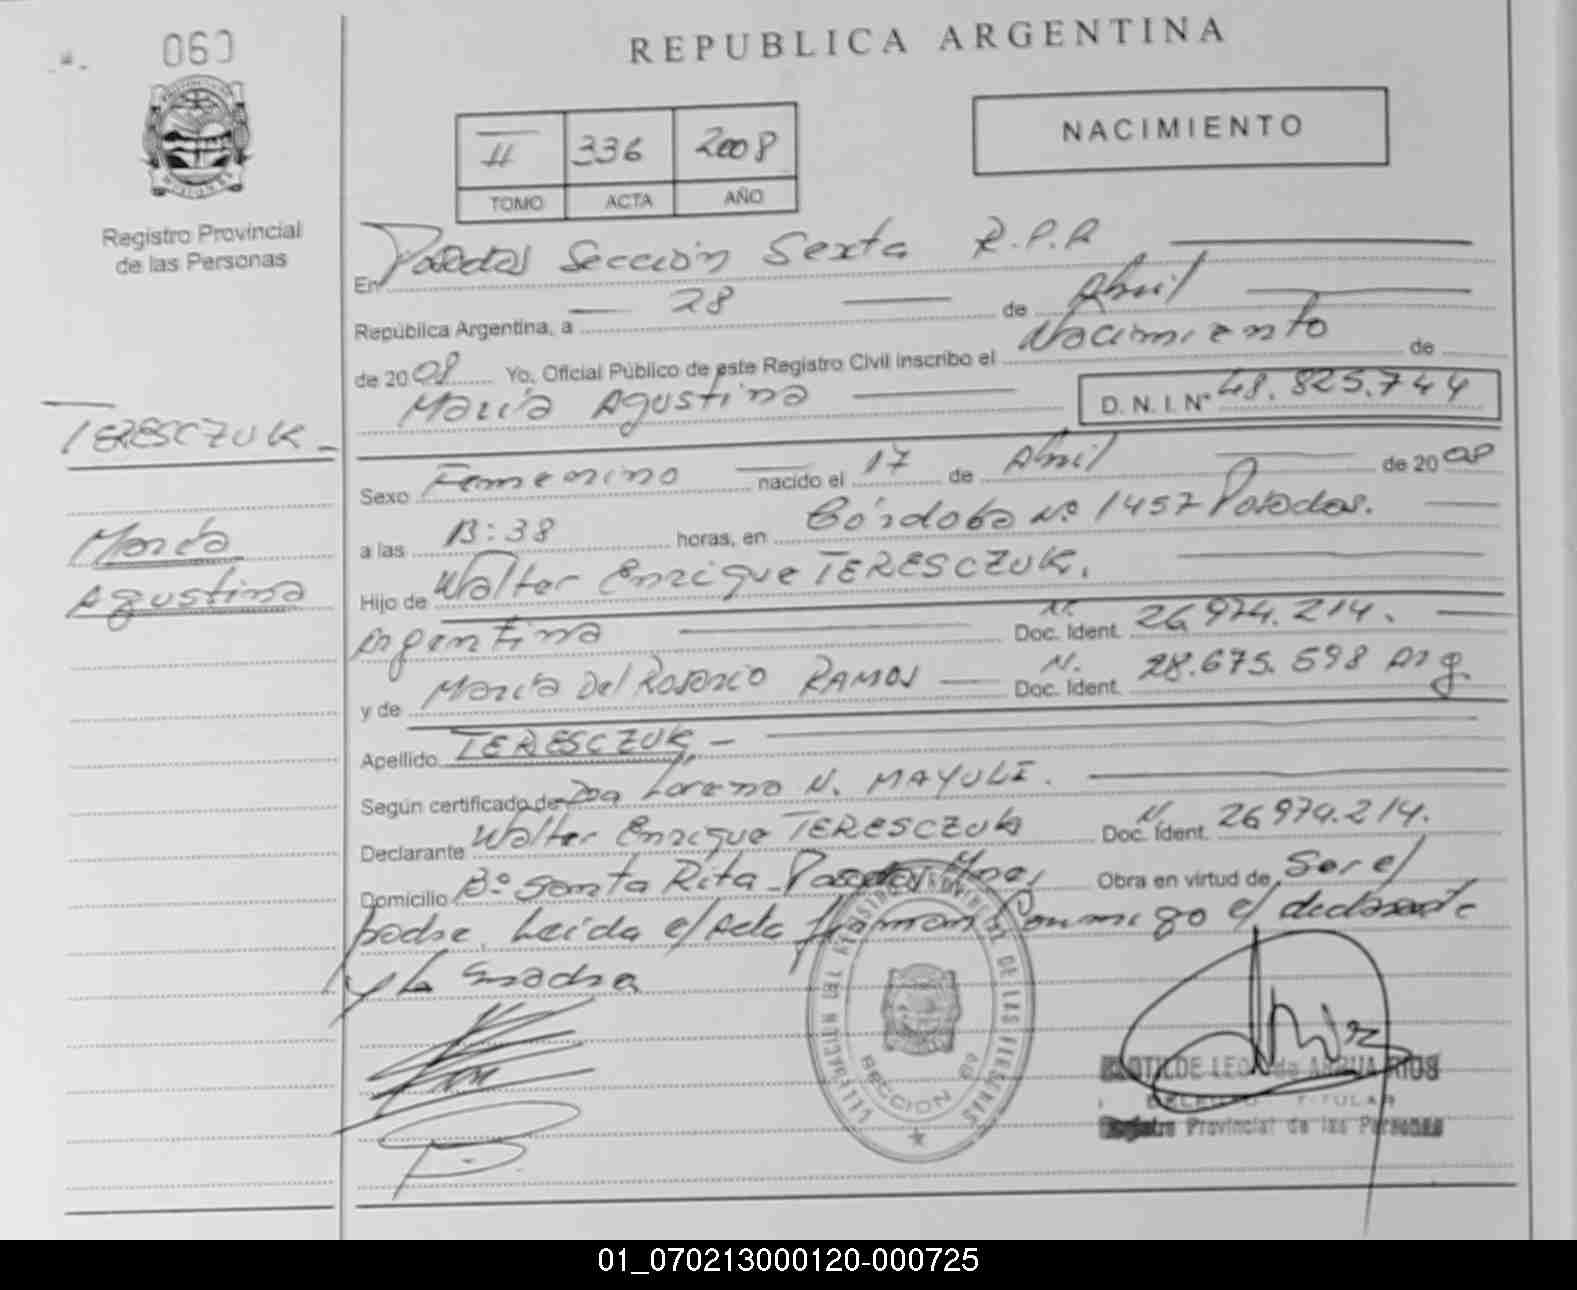 060
REPUBLICA ARGENTINA
II 336 2008
TOMO ACTA AÑO
NACIMIENTO
Registro Provincial
de las Personas
En Posadas Sección Sexta R.P.P.
República Argentina, a 28 de Abril
de 2008 Yo, Oficial Público de este Registro Civil inscribo el Nacimiento de
María Agustina D. N. I. Nº 48.825.744
TERESCZUK
María
Agustina
Sexo Femenino nacido el 17 de Abril de 2008
a las 13:38 horas, en Córdoba Nº 1457 Posadas.
Hijo de Walter Enrique TERESCZUK.
Argentina Doc. Ident. N. 26.974.214.
y de María Del Rosario RAMOS Doc. Ident. N. 28.675.598 Arg.
Apellido TERESCZUK.-
Según certificado de Dra Lorena N. MAYULI.
Declarante Walter Enrique TERESCZUK Doc. Ident. N. 26974.214.
Domicilio Bº Santa Rita - Posadas Mnes. Obra en virtud de Ser el
padre. Leída el Acta firman Conmigo el declarante
y La madre
DE LAS PERSONAS
SECCION 6ª
TITULAR
Registro Provincial de las Personas
01_070213000120-000725